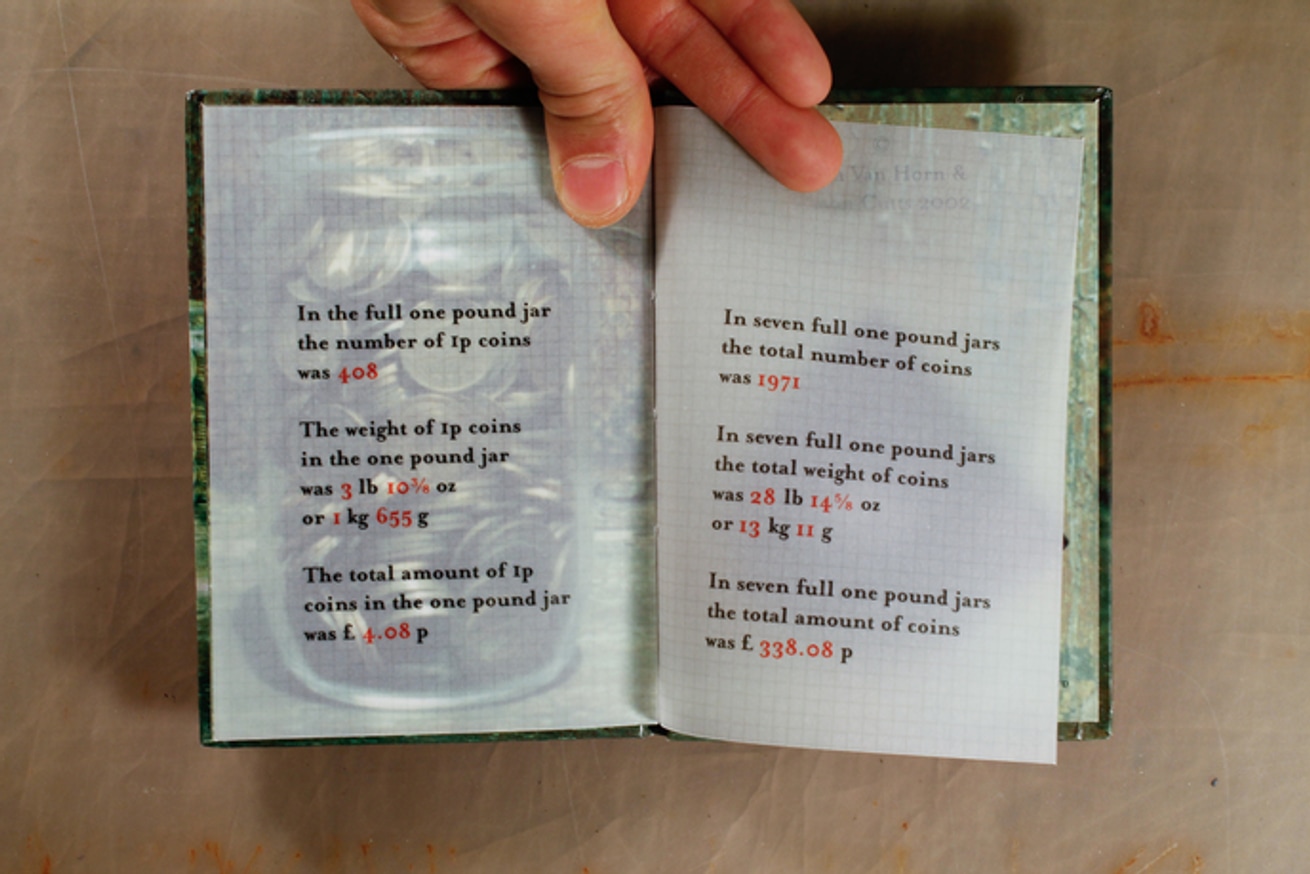 In the full one pound jar
the number of 1p coins
was 408
The weight of 1p coins
in the one pound jar
was 3 lb 10⅜ oz
or 1 kg 655 g
The total amount of 1p
coins in the one pound jar
was £ 4.08 p
©
Van Horn &
2002
In seven full one pound jars
the total number of coins
was 1971
In seven full one pound jars
the total weight of coins
was 28 lb 14⅝ oz
or 13 kg 11 g
In seven full one pound jars
the total amount of coins
was £ 338.08 p